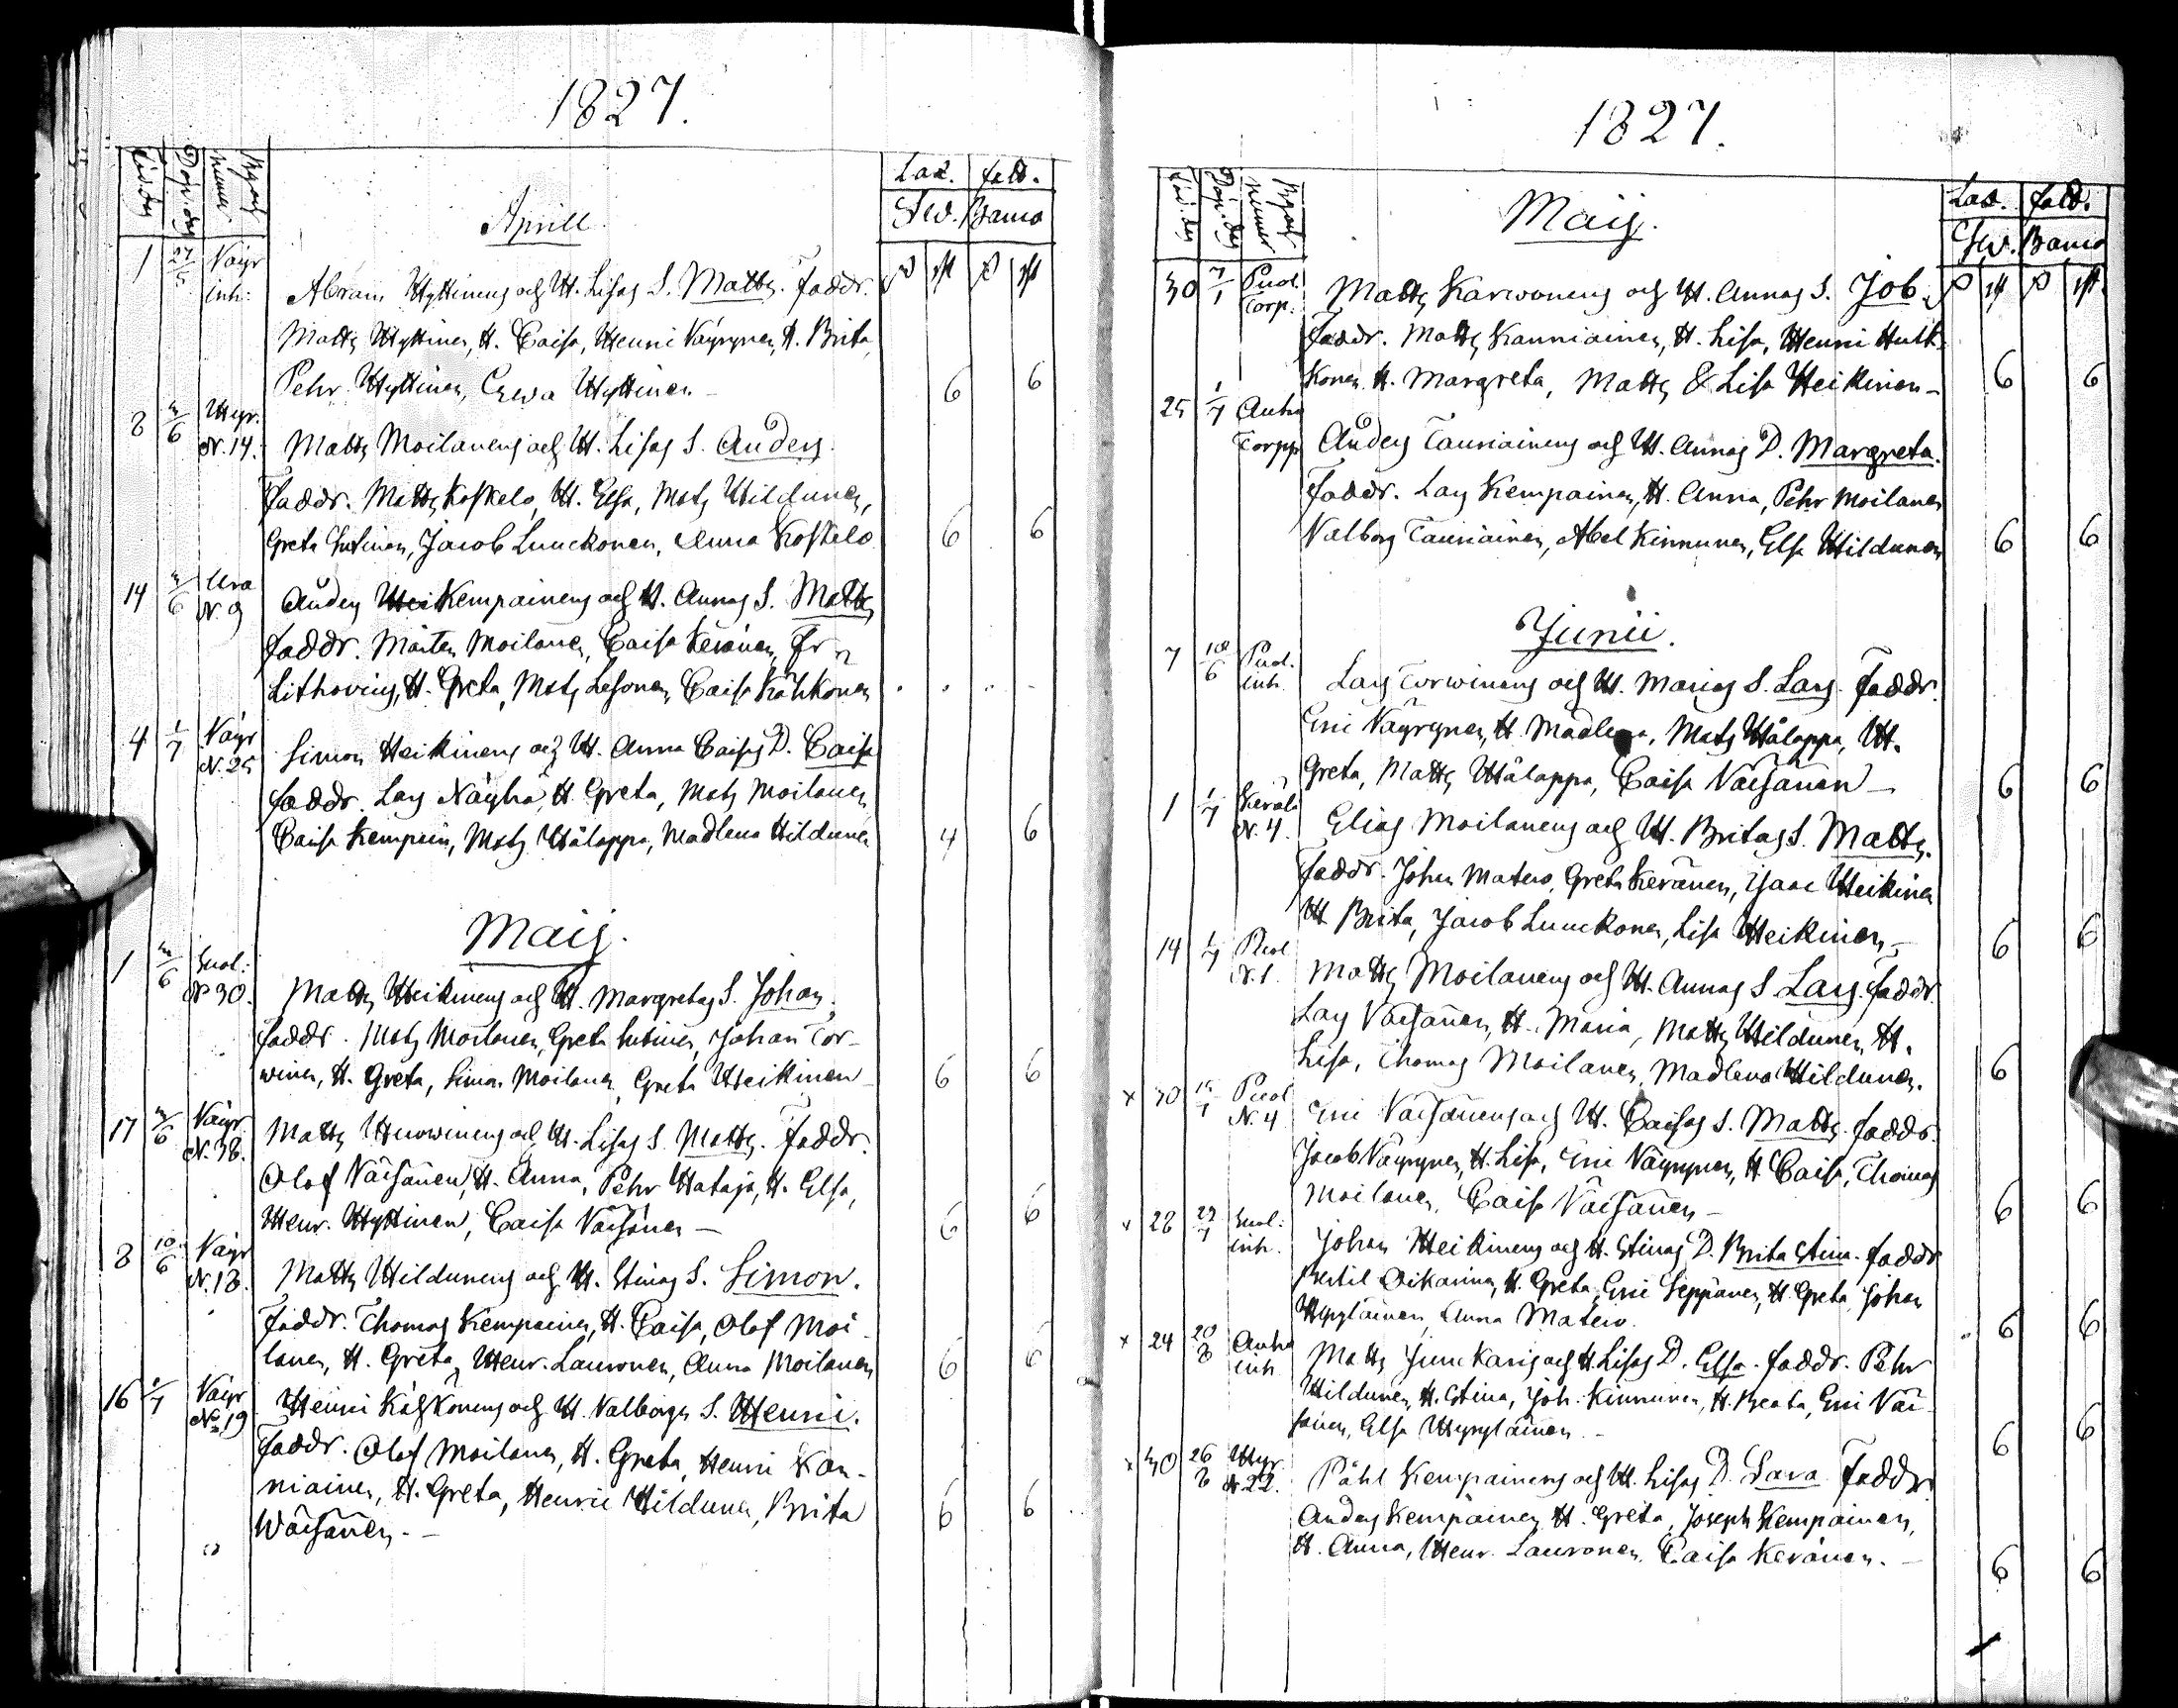 1827.
Föd. dag
Döp. dag
By och numer
Laz. fatt.
Sw. Banco
Aprill
1 27/5 Näyr inh: Abram Hyttinens och H. Lisas S. Matts. Faddr.
Matts Hyttinen, H. Caisa, Henric Väyrynen, H. Brita,
Pehr Hyttinen, Ewa Hyttinen – 6 6
8 3/6 Hyr. N. 14. Matts Moilanens och H. Lisas S. Anders.
Faddr. Matts Koskelo, H. Elsa, Mats Hildunen,
Greta Lutinen, Jacob Lunckonen, Anna Koskelo 6 6
14 3/6 Ura N. 9 Anders Kempainens och H. Annas S. Matts
Faddr. Mårten Moilanen, Caisa Keränen, Fr n
Lithovius, H. Greta, Mats Lesonen, Caisa Kähkönen
4 1/7 Näyr N. 25 Simon Heikinens och H. Anna Caisas D. Caisa
Faddr. Lars Näyhä, H. Greta, Mats Moilanen
Caisa Kempain, Mats Hålappa, Madlena Hildunen 4 6
Maij.
1 3/6 Suol: N 30. Matts Heikinens och H. Margretas S. Johan.
Faddr. Mats Moilanen, Greta Lutinen, Johan Tor-
winen, H. Greta, Simon Moilanen, Greta Heikinen – 6 6
17 3/6 Näyr N. 38. Matts Huowinens och H. Lisas S. Matts. Faddr.
Olof Väisänen, H. Anna, Pehr Hataja, H. Elsa,
Henr. Hyttinen, Caisa Väisänen – 6 6
8 10/6 Näyr N. 18. Matts Hildunens och H. Stinas S. Simon.
Faddr. Thomas Kempainen, H. Caisa, Olof Moi-
lanen, H. Greta, Henr. Lauronen, Anna Moilanen 6 6
16 1/7 Näyr No 19 Henric Kähkönens och H. Valborgs S. Henric.
Faddr. Olof Moilanen, H. Greta, Henric Kan-
niainen, H. Greta, Henric Hildunen, Brita
Wäisänen. – 6 6
1827.
Föd. dag
Döp. dag
By och numer
Laz. fatt.
Sw. Banco
Maij.
30 7/1 Puol. Torp. Matts Karwonens och H. Annas S. Job.
Faddr. Matts Kanniainen, H. Lisa, Henric Hutt-
konen H. Margreta, Matts & Lisa Heikinen – 6 6
25 1/7 Autio Torpp Anders Tauriainens och H. Annas D. Margreta.
Faddr. Lars Kempainen, H. Anna, Pehr Moilanen
Valborg Tauriainen, Abel Kinnunen, Elsa Hildunen 6 6
Junii.
7 10/6 Puol. inh. Lars Torwinens och H. Marias S. Lars. Faddr.
Eric Väyrynen, H. Madlena, Mats Hålappa, H.
Greta, Matts Hålappa, Caisa Väisänen – 6 6
1 1/7 Kerälä N. 4. Elias Moilanens och H. Britas S. Matts.
Faddr. Johan Matero, Greta Keränen, Isaac Heikinen
H Brita, Jacob Lunckonen, Lisa Heikinen – 6 6
14 1/7 Puol N. 1. Matts Moilanens och H. Annas S Lars. Faddr.
Lars Väisänen, H. Maria, Matts Hildunen, H.
Lisa, Thomas Moilanen, Madlena Hildunen. 6
x 30 15/7 Puol N. 4 Eric Väisänens och H. Caisas S. Matts. Faddr.
Jacob Väyrynen, H. Lisa, Eric Väyrynen, H Caisa, Thomas
Moilanen, Caisa Väisänen – 6 6
x 28 29/7 Suol: inh. Johan Heikinens och H. Stinas D. Brita Stina. Faddr
Bertil Oikarinen, H. Greta, Eric Seppänen, H. Greta, Johan
Hyryläinen, Anna Matero. 6 6
x 24 20/8 Autio inh Matts Junckaris och H. Lisas D. Elsa. Faddr. Pehr
Hildunen, H. Stina, Joh. Kinnunen, H. Beata, Eric Väi-
sänen, Elsa Hyryläinen – 6 6
x 30 26/8 Hyr. N. 22. Påhl Kempainens och H. Lisas D. Sara Faddr
Anders Kempainen, H. Greta, Joseph Kempainen,
H. Anna, Henr. Lauronen, Caisa Keränen. – 6 6